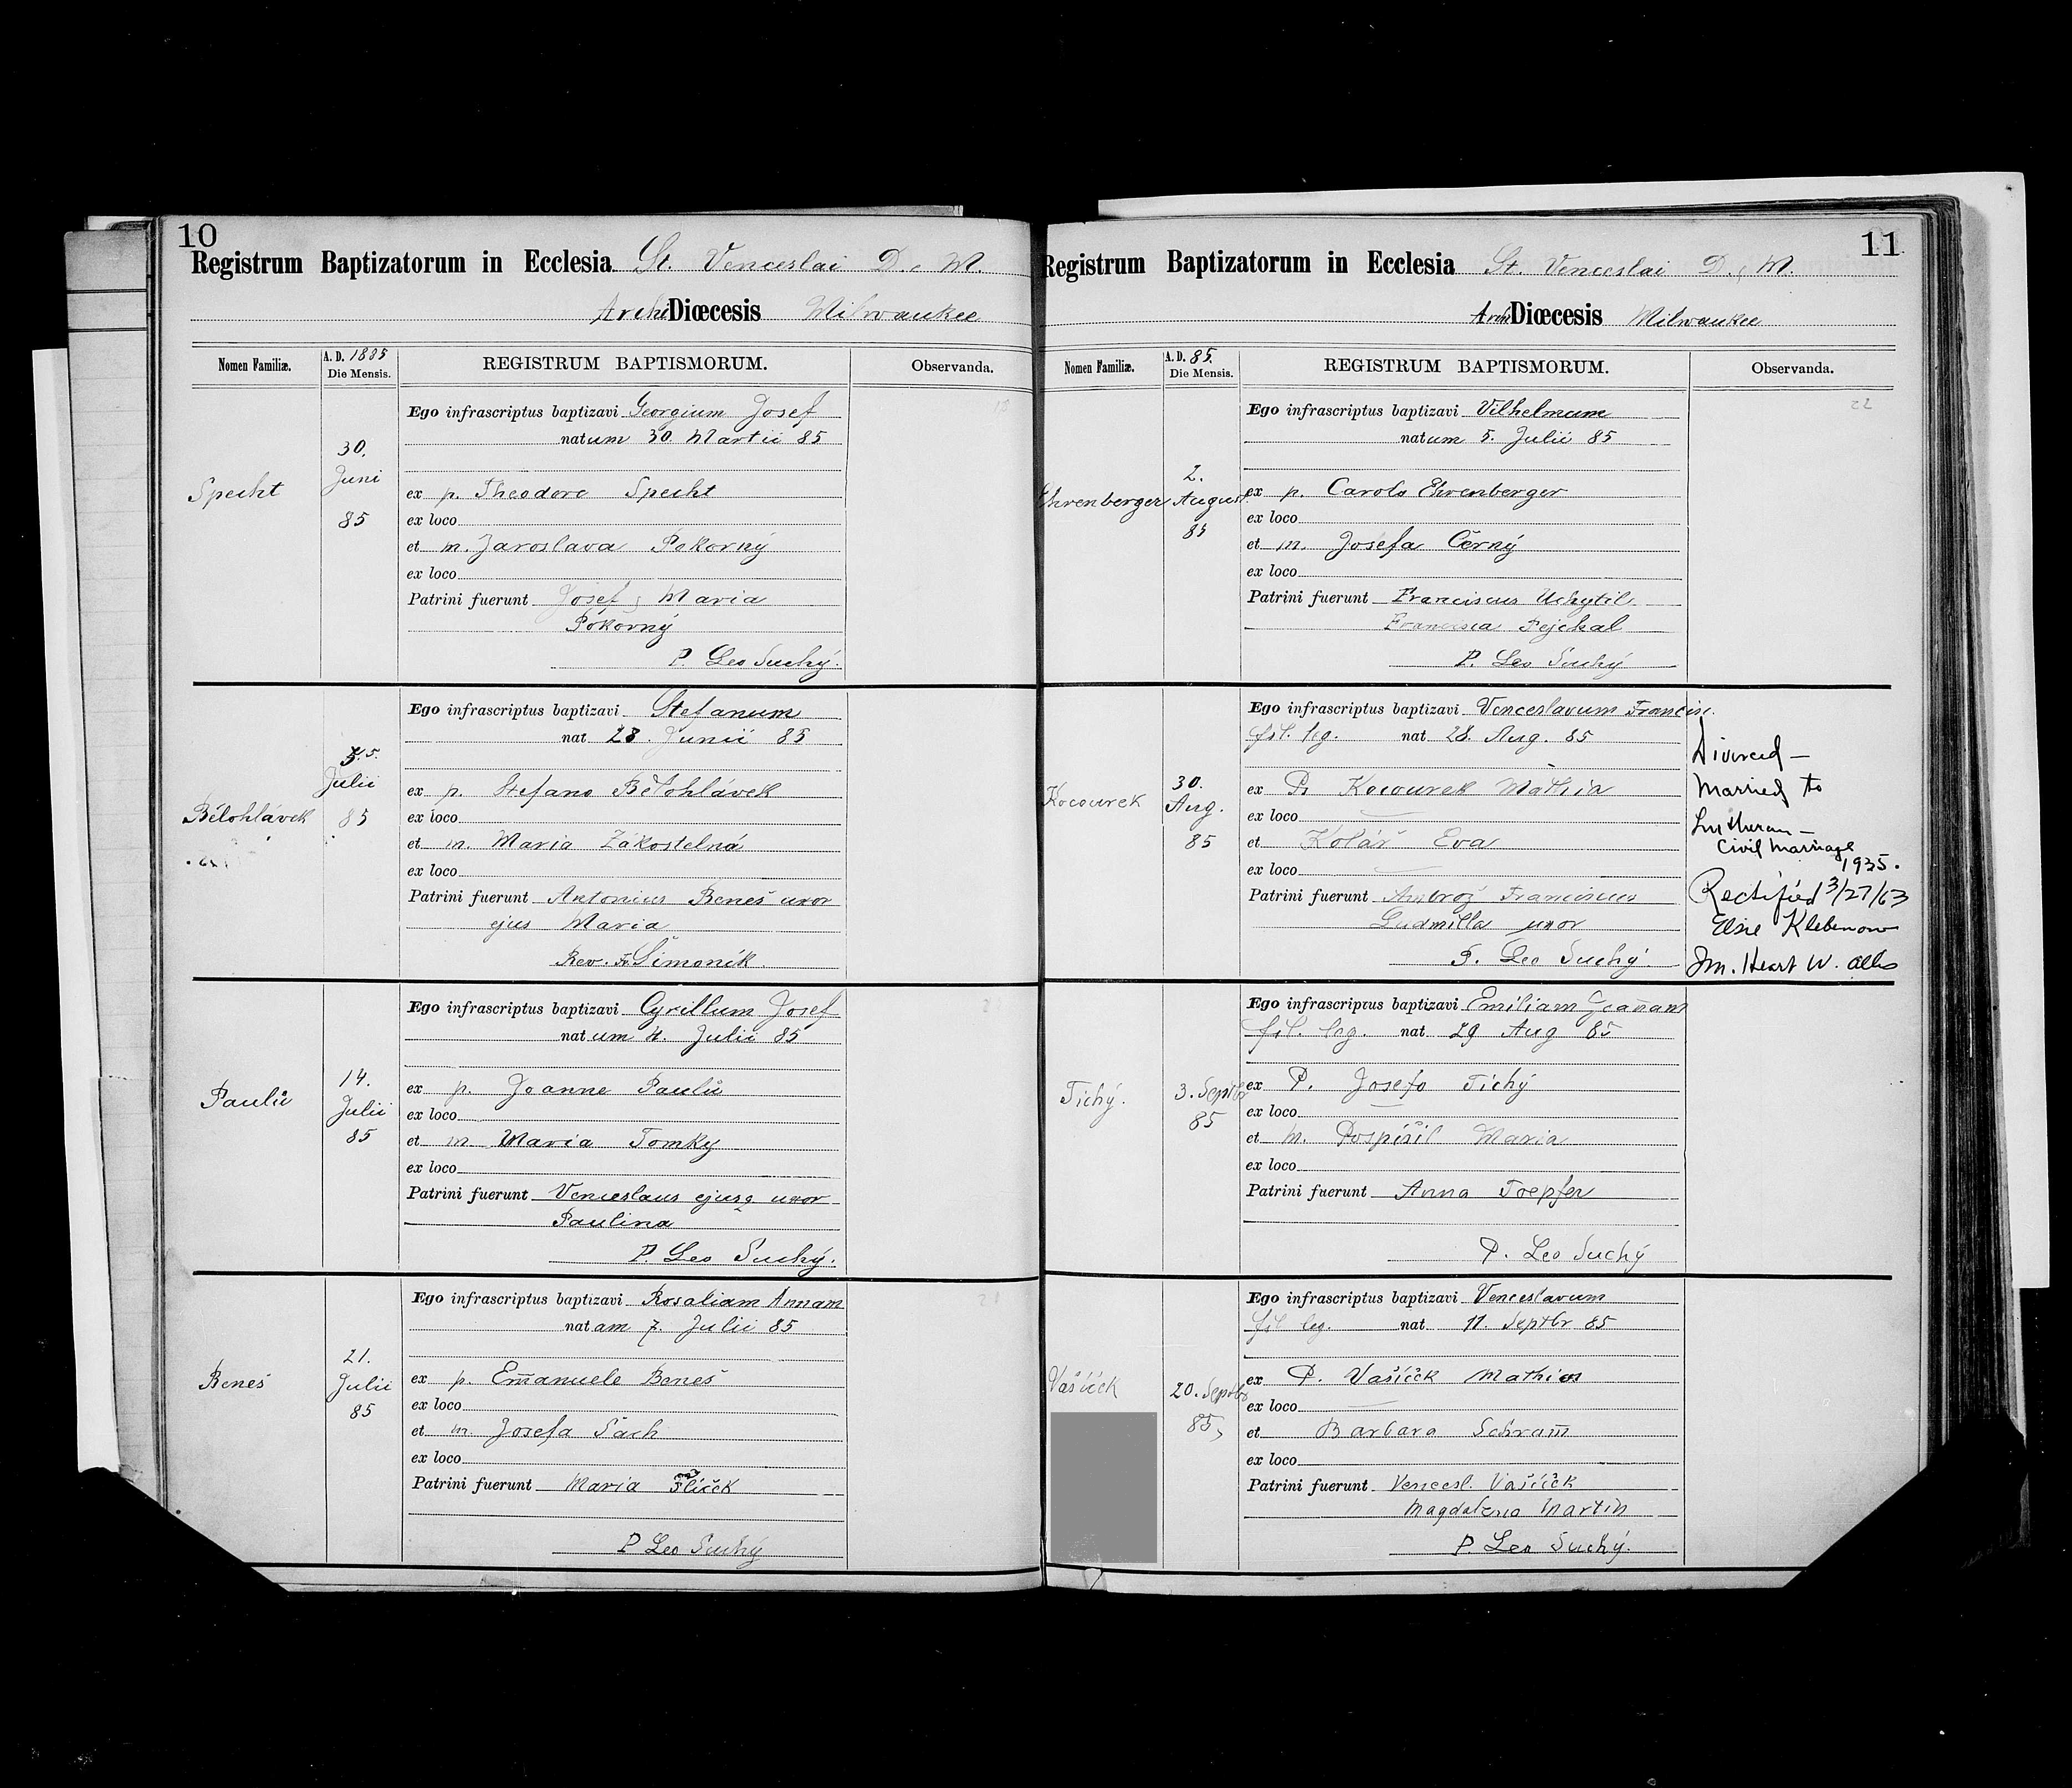 10
Registrum Baptizatorum in Ecclesia St. Venceslai D. e M.
Archi Diœcesis Milwaukee
Nomen Familiæ.
A. D. 1885
Die Mensis.
REGISTRUM BAPTISMORUM.
Observanda.
Specht
30.
Juni
85
Ego infrascriptus baptizavi Georgium Josef
natum 30. Martii 85
ex p. Theodoro Specht
ex loco
et m. Jaroslava Pokorný
ex loco
Patrini fuerunt Josef Maria
Pokorný
P. Leo Suchý.
Bělohlávek
5.
Julii
85
Ego infrascriptus baptizavi Stefanum
nat 28. Junii 85
ex p. Stefano Bělohlávek
ex loco
et m. Maria Zákostelná
ex loco
Patrini fuerunt Antonius Beneš uxor
ejus Maria
Rev. Fr. Šimoník.
Paulů
14.
Julii
85
Ego infrascriptus baptizavi Cyrillum Josef
natum 4. Julii 85
ex p. Joanne Paulů
ex loco
et m. Maria Tomky
ex loco
Patrini fuerunt Venceslaus ejusq uxor
Paulina
P. Leo Suchý.
Beneš
21.
Julii
85
Ego infrascriptus baptizavi Rosaliam Annam
natam 7. Julii 85
21
ex p. Em̄anuele Beneš
ex loco
et m. Josefa Šach
ex loco
Patrini fuerunt Maria Flíček
P Leo Suchý
11
Registrum Baptizatorum in Ecclesia St. Venceslai D. e M.
Archi Diœcesis Milwaukee
Nomen Familiæ.
A. D. 85.
Die Mensis.
REGISTRUM BAPTISMORUM.
Observanda.
Ehrenberger
2.
August
85
Ego infrascriptus baptizavi Vilhelmum
22
natum 5. Julii 85
ex p. Carolo Ehrenberger
ex loco
et m. Josefa Černý
ex loco
Patrini fuerunt Franciscus Uchytil
Francisca Fejekal
P. Leo Suchý
Kocourek
30.
Aug.
85
Ego infrascriptus baptizavi Venceslavum Francisc.
fil. leg. nat 28. Aug. 85
ex P. Kocourek Mathia
ex loco
et Kolář Eva
ex loco
Patrini fuerunt Ambrož Franciscus
Ludmilla uxor
P. Leo Suchý.
Divorced —
Married to
Lutheran —
Civil Marriage
1935.
Rectified 3/27/63
Elsie Klebenow
Im. Heart W. Allis
Tichý.
3. Septbr
85
Ego infrascriptus baptizavi Emiliam
fil. leg. nat 29 Aug 85
ex P. Josefo Tichý
ex loco
et m. Pospíšil Maria
ex loco
Patrini fuerunt Anna Toepfer
P. Leo Suchý
Vašíček
20. Septbr
85,
Ego infrascriptus baptizavi Venceslavum
fil leg. nat 11. Septbr 85
ex P. Vašíček Mathias
ex loco
et Barbara Schram̄
ex loco
Patrini fuerunt Vencesl. Vašíček
Magdalena Martin
P. Leo Suchý.